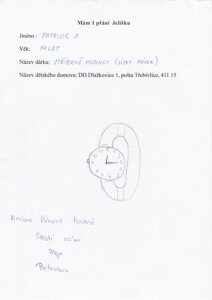 Mám 1 přání Ježíšku
Jméno: PATRICIE S.
Věk: 14 LET
Název dárku: STŘÍBRNÉ HODINKY (ÚZKÝ PÁSEK)
Název dětského domova: DD Dlažkovice 1, pošta Třebívlice, 411 15
Krásné Vánoce hodně
štěstí vám
přeje